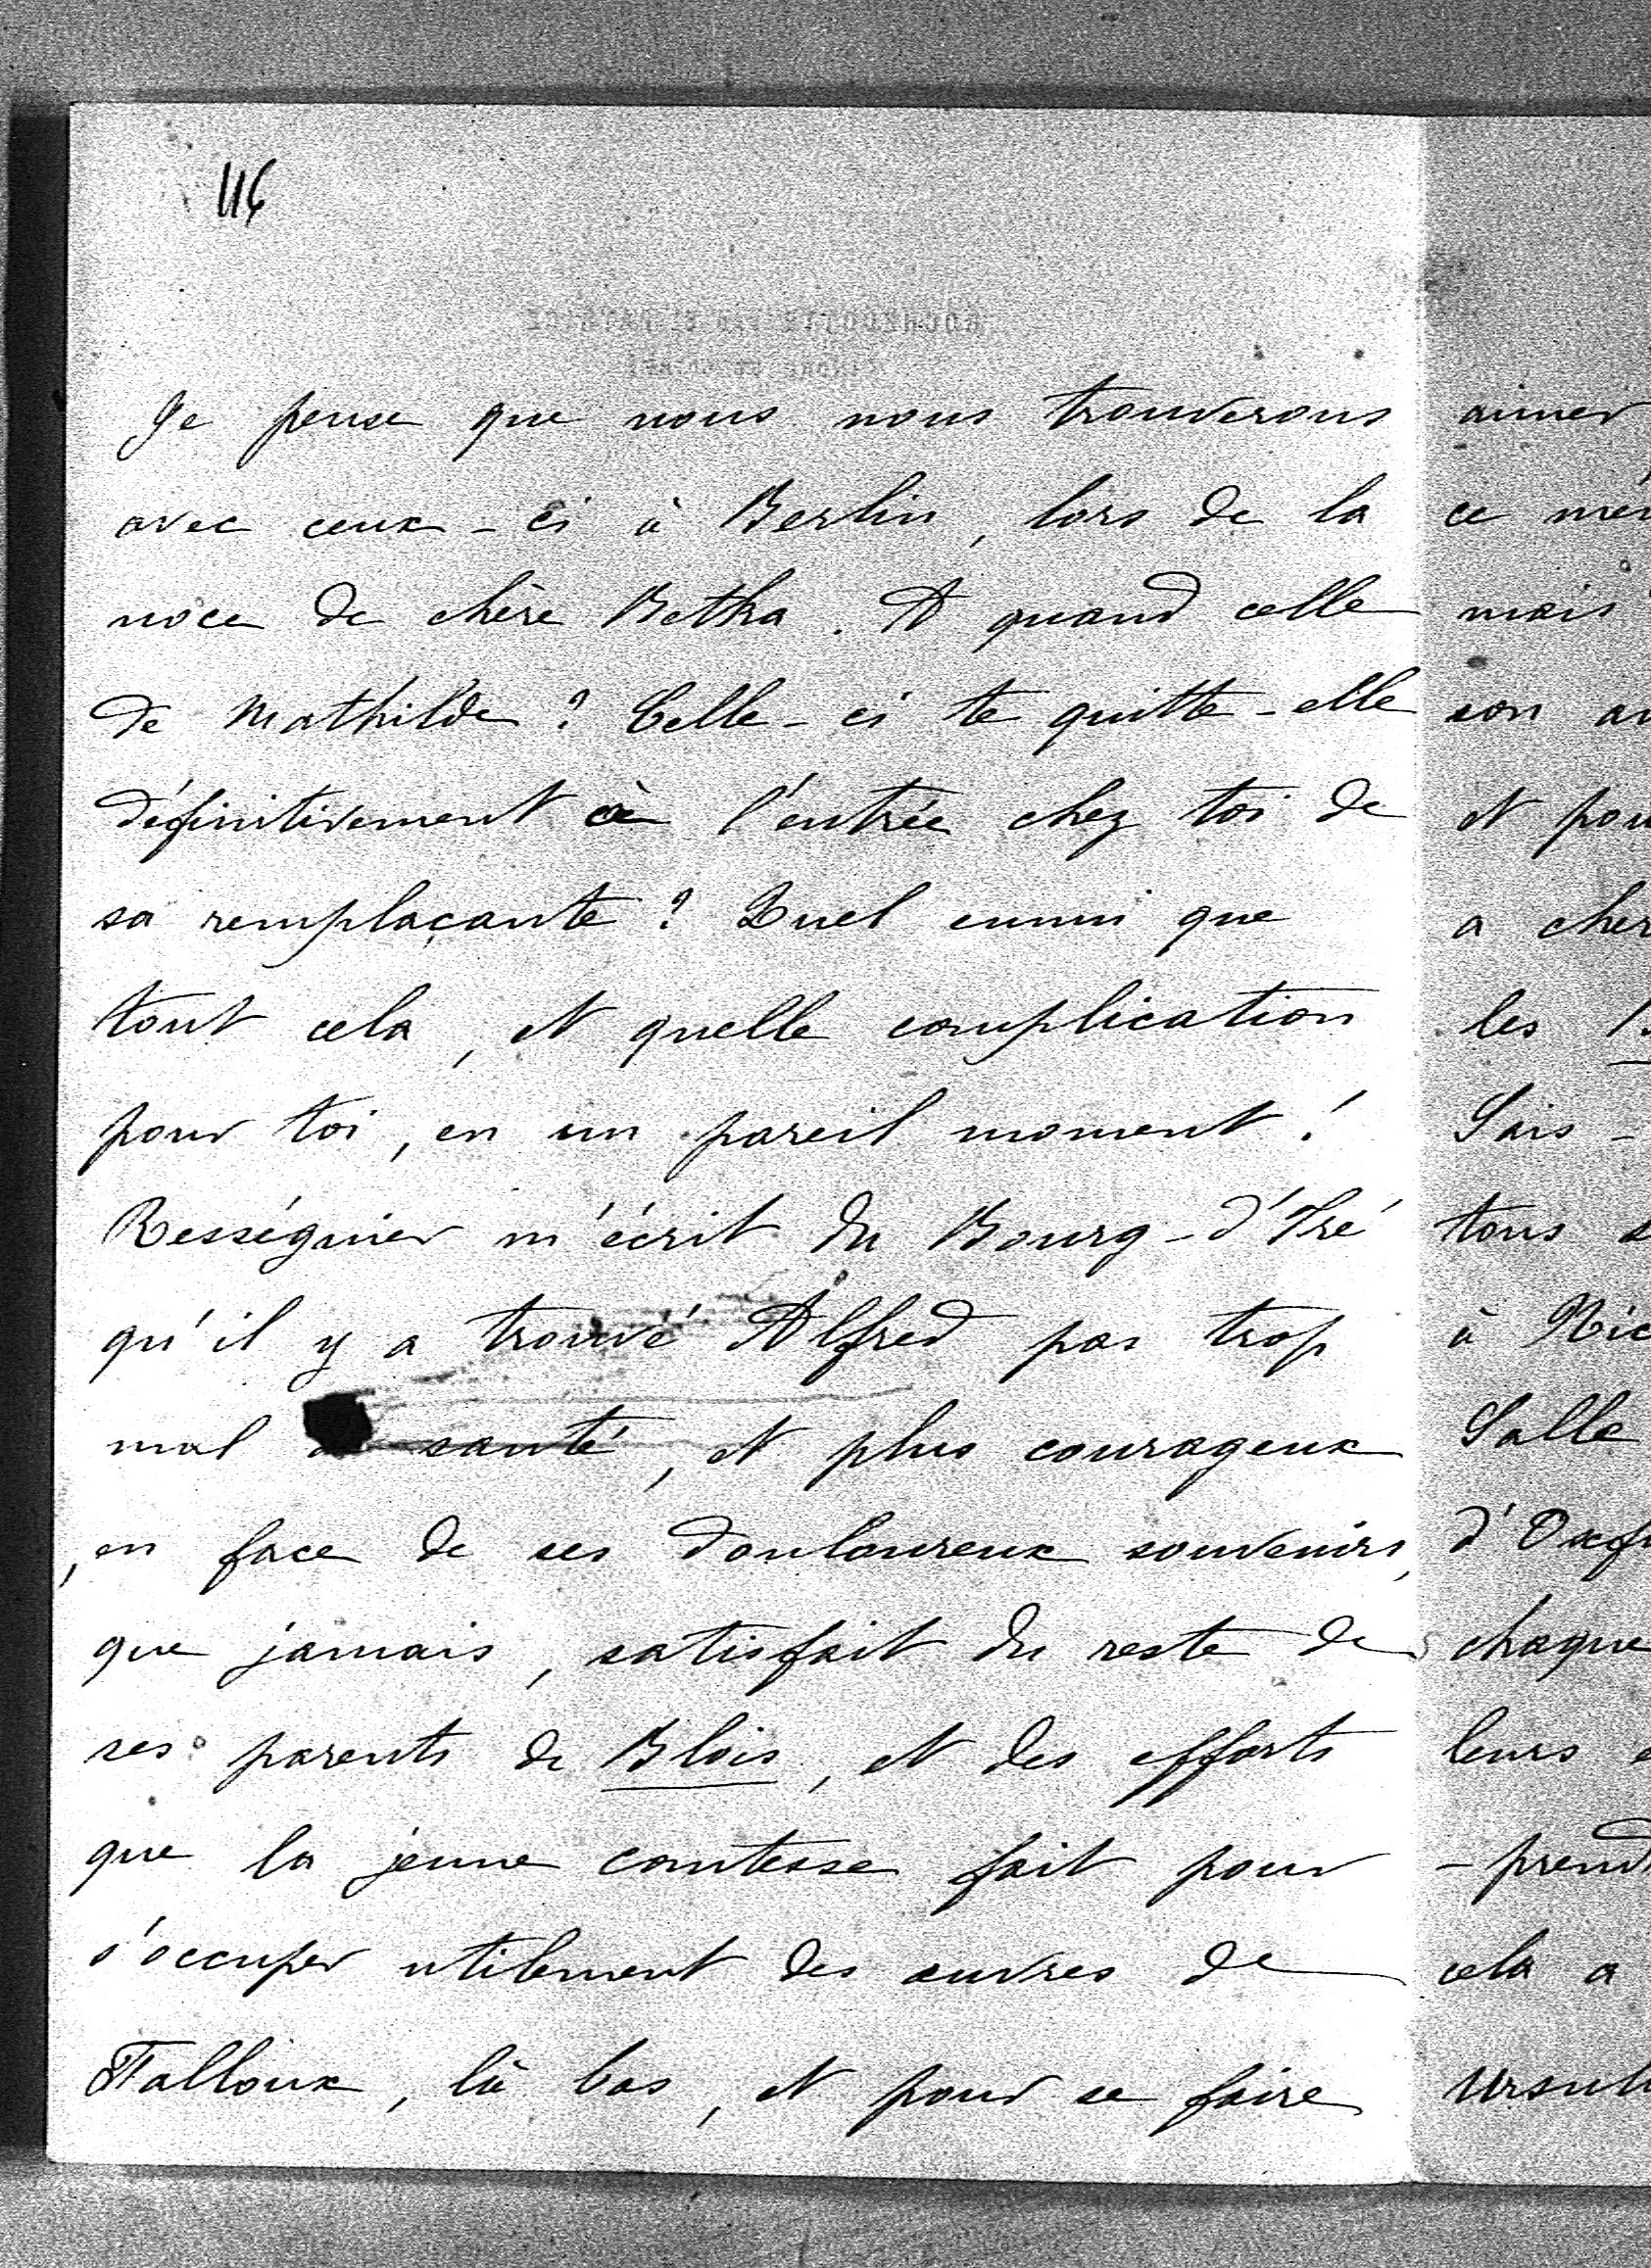 116
Je pense que nous nous trouverons
avec ceux-ci à Berlin, lors de la
noce de chère Betka. A quand celle
de Mathilde ? Celle-ci te quitte-elle
définitivement à l'entrée chez toi de
sa remplaçante ? Quel ennui que
tout cela, et quelle complication
pour toi, en un pareil moment !
Rességuier m'écrit du Bourg-d'Iré
qu'il y a trouvé Alfred pas trop
mal de santé, et plus courageux
, en face de ses douloureux souvenirs,
que jamais, satisfait du reste de
ses parents de Blois, et des efforts
que la jeune comtesse fait pour
s'occuper utilement des œuvres de
Falloux, là bas, et pour se faire
aimer
ce
mais
son
et
a
les
Sais-
tous
à
Salle
chaque
leurs
-prend
cela a